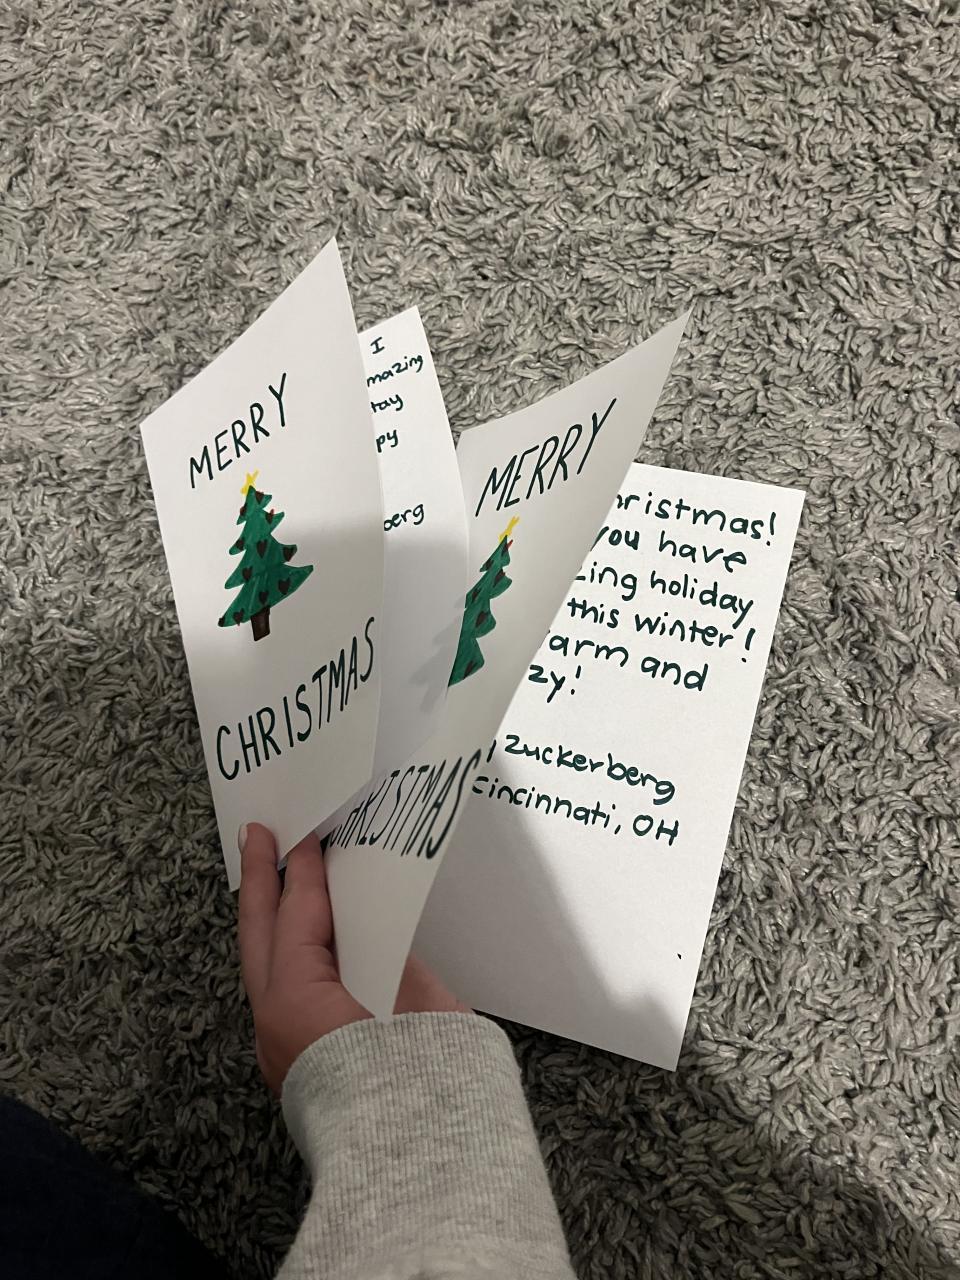 MERRY
CHRISTMAS
I
mazing
tay
py
berg
MERRY
HRISTMAS
hristmas!
you have
zing holiday
this winter!
arm and
zy!
, Zuckerberg
Cincinnati, OH